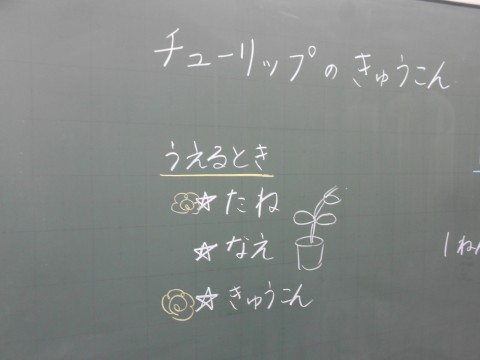 チューリップのきゅうこん
うえるとき
☆たね
☆なえ
☆きゅうこん
1ねん